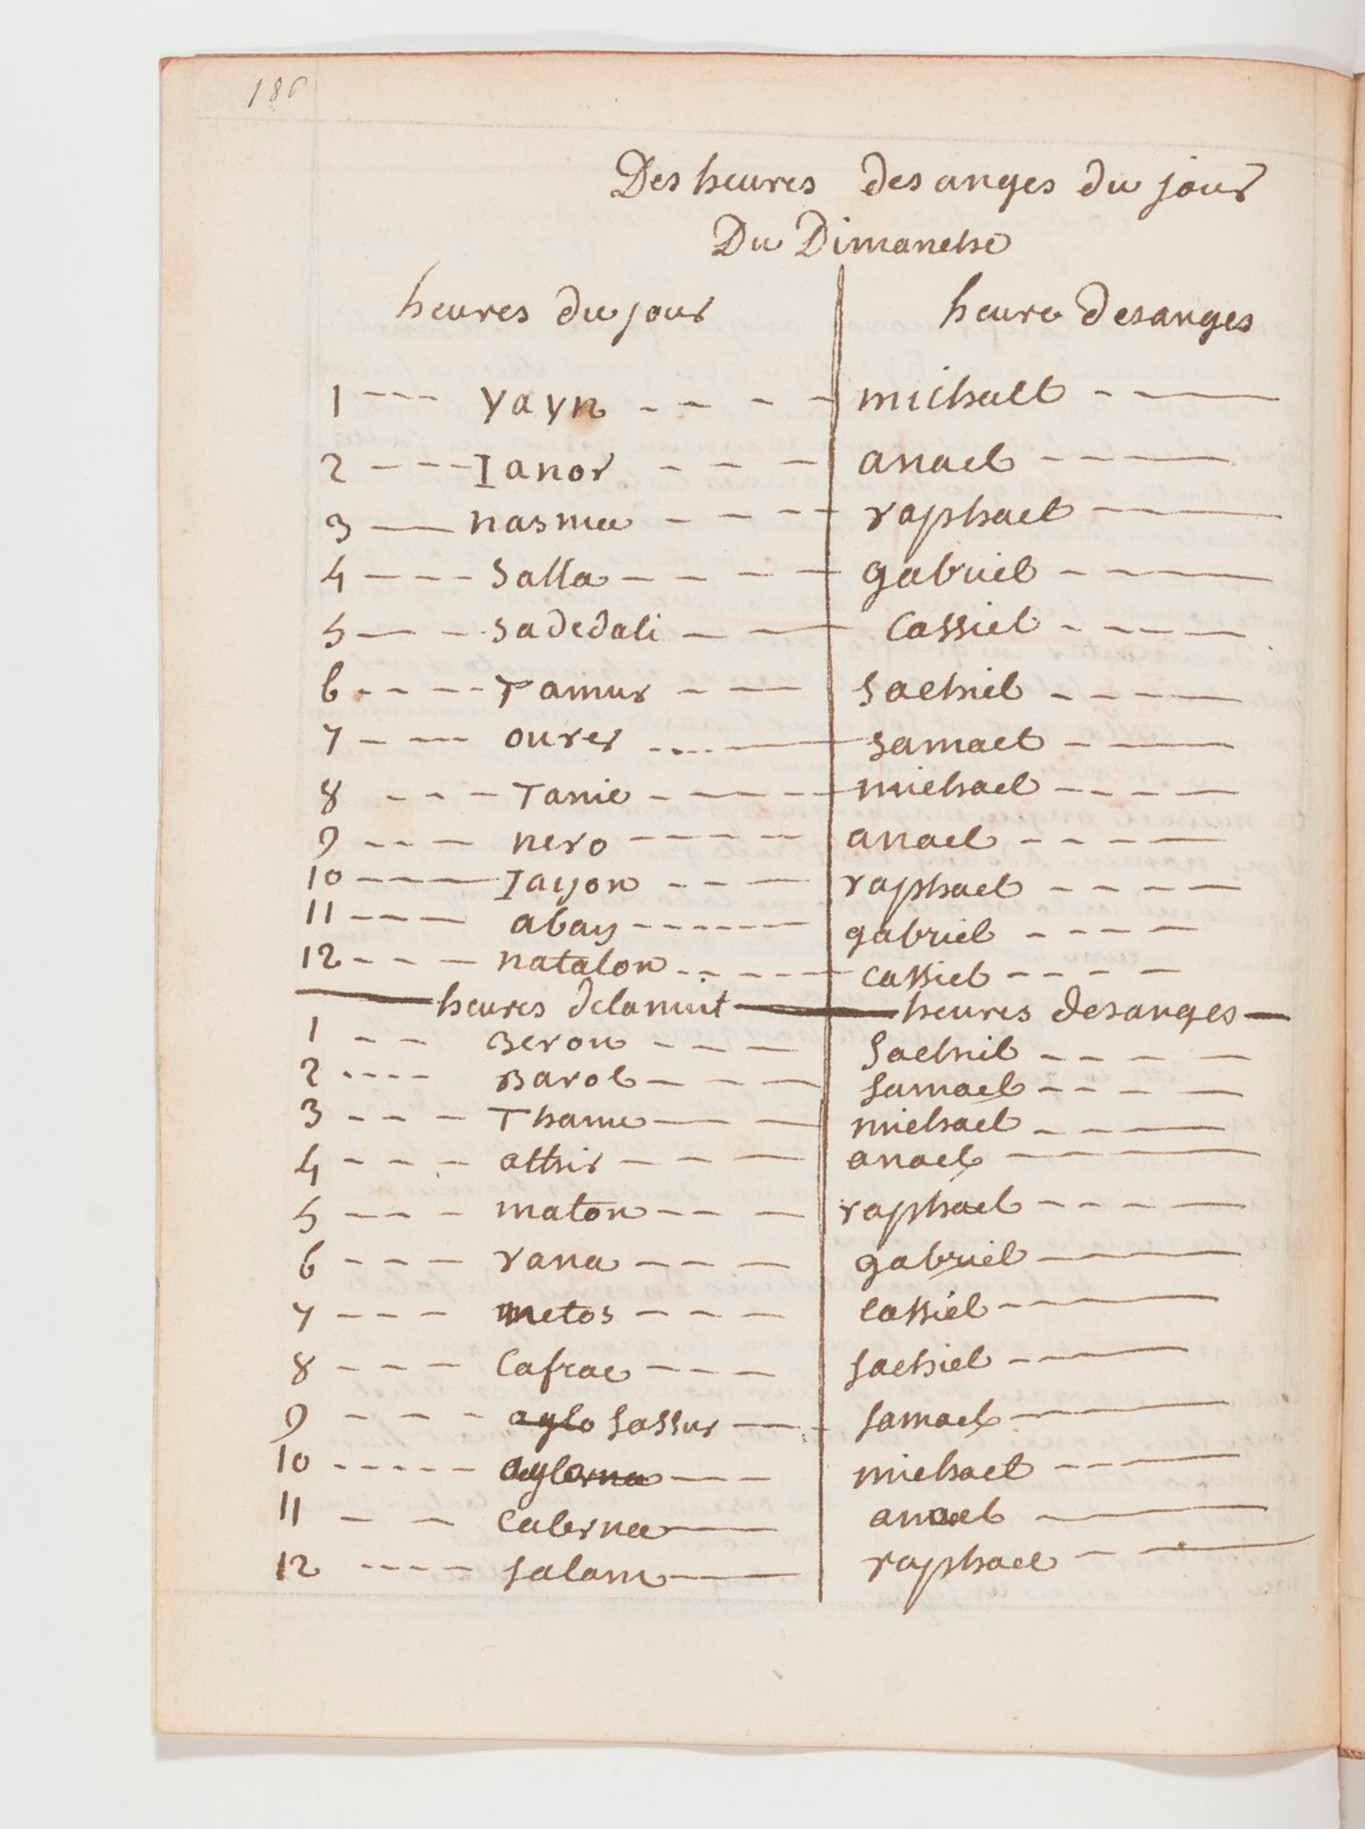 186
Des heures des anges du jour
Du Dimanche
heures du jour heure des anges
1 --- yayn - - - - michael - - —
2 - - - Ianor - - - anael - - - —
3 — nasnia - - - - raphael - - —
4 - - - Salla - - - - gabriel - - —
5 — - Sadedali - — Cassiel - - - —
6 - - - - Tamus - — Sachiel - - - —
7 - - -- ourer ...- — Samael - - —
8 - - - Tanie - - - - michael - - - —
9 -- - nero - - - - - anael - - - —
10 - - - — Jayon - - — raphael - - - —
11 - - - abay - - - - - - gabriel - - - -
12 - - - natalon - - - - - cassiel - - - -
heures de la nuit heures des anges
1 - - Beron - - - - Sachiel - - - -
2 ---- Barol - - - - Samael - - - -
3 - - - Thami — - michael - - — -
4 - - - athir - - - - anael - — —
5 - - - maton - - - raphael - - - - —
6 - - - rana - - - - gabriel — —
7 - - - metos - - - - cassiel - — —
8 - - - Cafrac - - - - Sachiel - — —
9 - - - aglo Sassur — - Samael - — —
10 ----- aglorna — - michael - - - —
11 - - Calerna — anael - — —
12 ---- Salam — raphael - - —